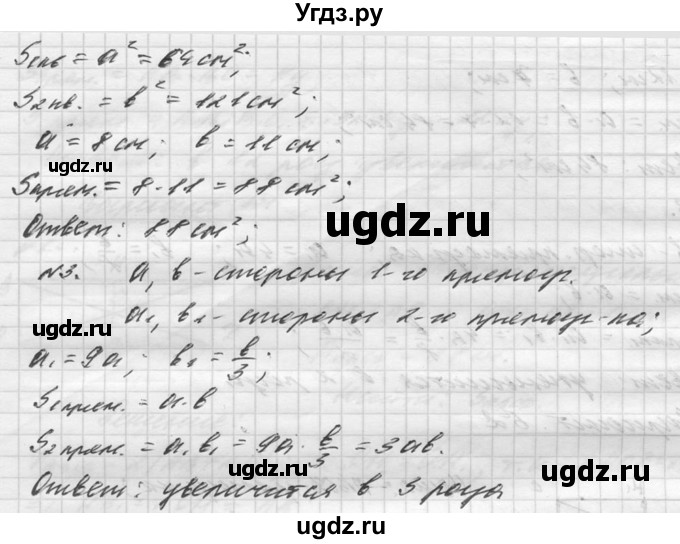 Угдз.ру
S1кв = a² = 64 см²;
S2кв. = b² = 121 см²;
a = 8 см; b = 11 см;
ugdz.ru ugdz.ru
Sпрям. = 8 · 11 = 88 см²;
ugdz.ru
Ответ: 88 см²;
№3. a, b - стороны 1-го прямоуг.
a₁, b₁ - стороны 2-го прямоуг-ка;
ugdz.ru
a₁ = 9a; b₁ = b/3;
S1прям. = a · b
ugdz.ru
S2прям. = a₁b₁ = 9a · b/3 = 3ab.
ugdz.ru ugdz.ru
Ответ: увеличится в 3 раза
ugdz.ru